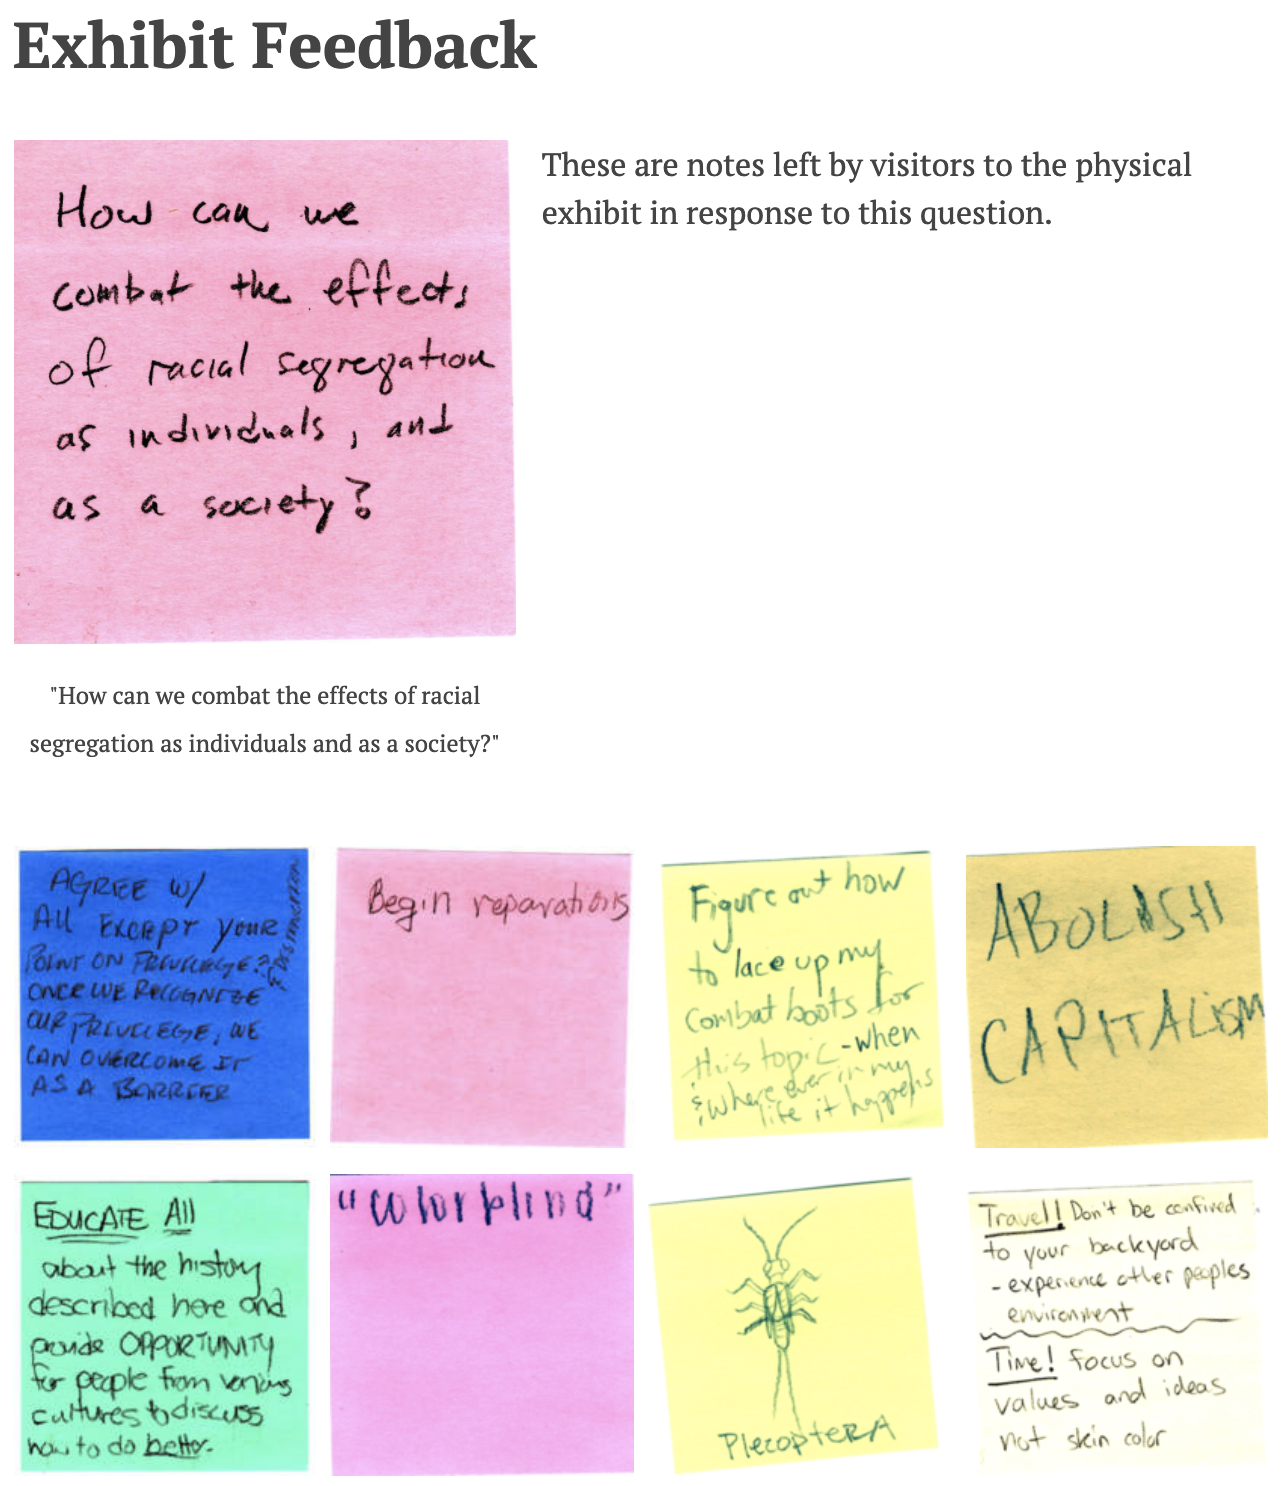 Exhibit Feedback
How can we
combat the effects
of racial segregation
as individuals, and
as a society?
These are notes left by visitors to the physical
exhibit in response to this question.
"How can we combat the effects of racial
segregation as individuals and as a society?"
AGREE W/
All EXCEPT YOUR
POINT ON PRIVILEGE?
ONCE WE RECOGNIZE
OUR PRIVILEGE, WE
CAN OVERCOME IT
AS A BARRIER
Begin reparations
Figure out how
to lace up my
combat boots for
this topic - when
& where ever in my
life it happens
ABOLISH
CAPITALISM
EDUCATE All
about the history
described here and
provide OPPORTUNITY
for people from various
cultures to discuss
how to do better.
"colorblind"
PlecopteRA
Travel! Don't be confined
to your backyard
- experience other peoples
environment
Time! focus on
values and ideas
not skin color